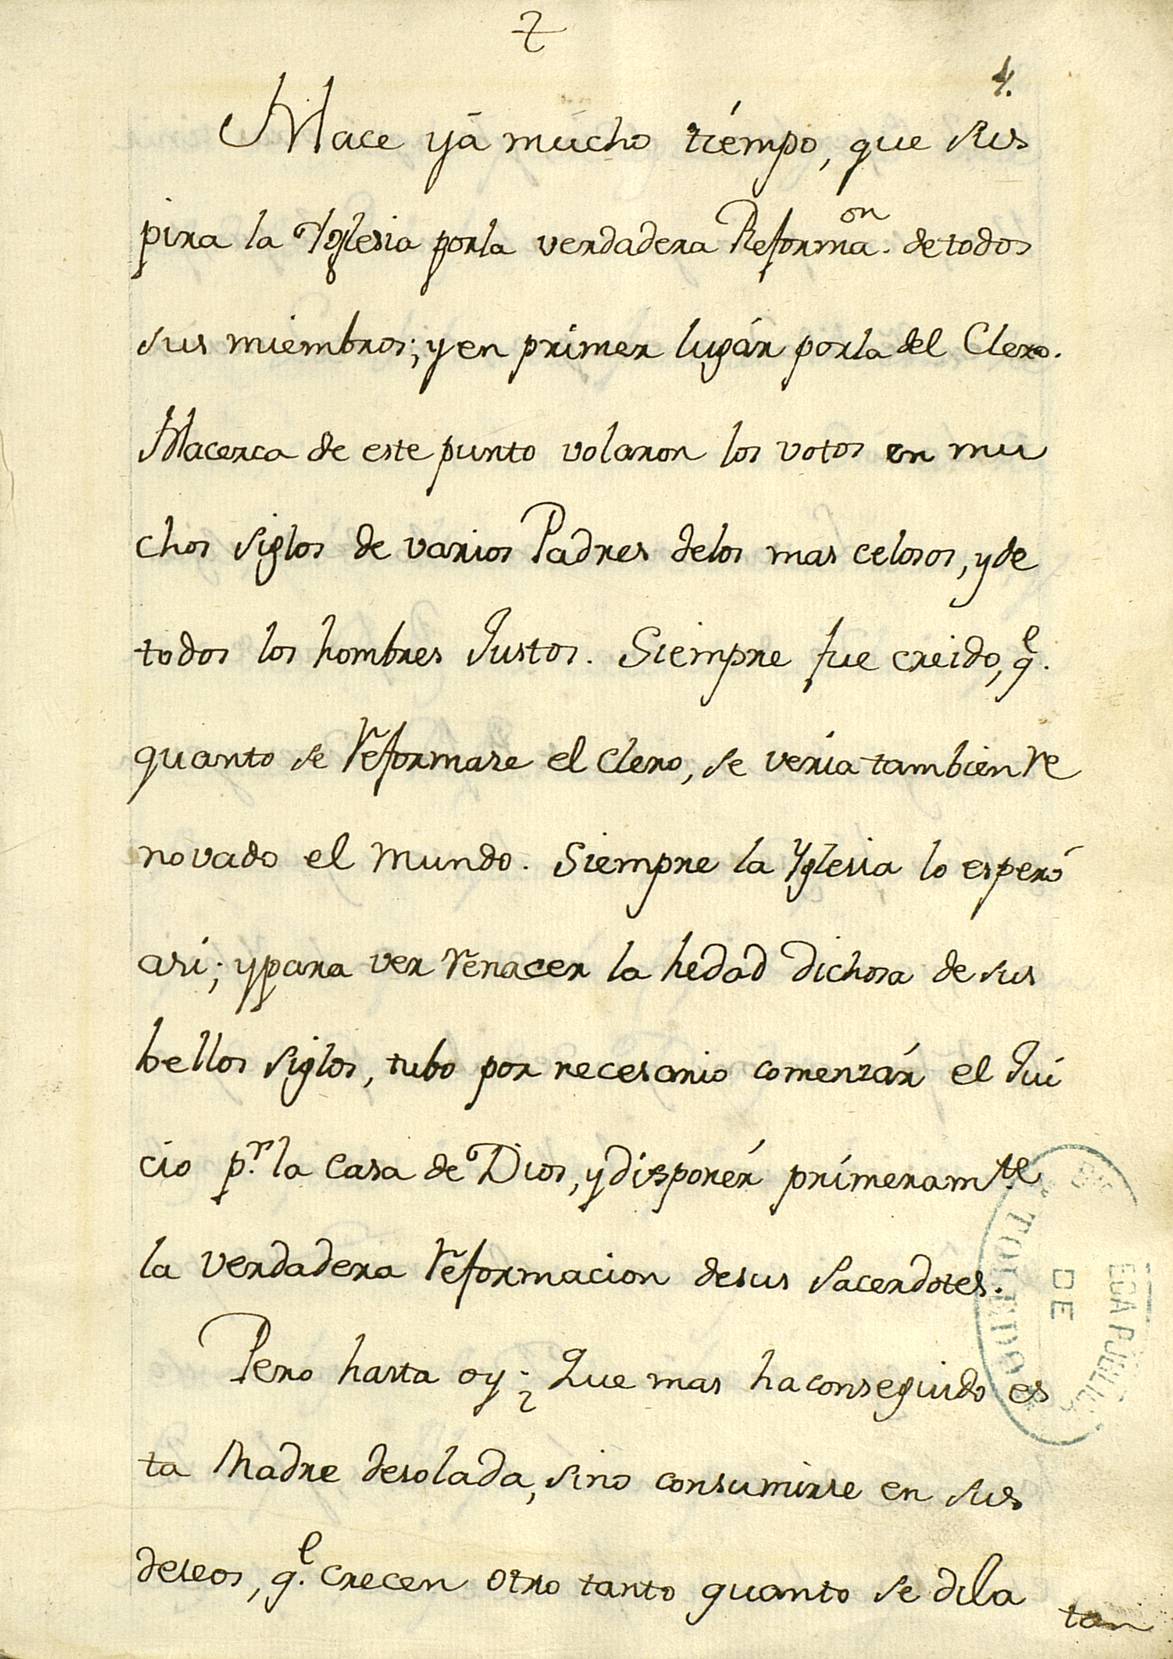 4.
Hace yá mucho tiémpo, que sus
pira la Yglesia porla verdadera Reformaon. detodos
sus miembros; y en primer lugár porla del Clero.
Hacerca de este punto volaron los votos en mu
chos siglos de varios Padres delos mas celosos, y de
todos los hombres Justos. Siempre fue creido, qe.
quanto se reformase el clero, se vería tambien re
novado el mundo. Siempre la Yglesia lo esperó
asi; y para ver renacer la hedad dichosa de sus
bellos siglos, tubo por necesario comenzár el Jui
cio pr. la casa de Dios, y disponér primeramte
la verdadera reformacion desus sacerdotes.
Pero hasta oy; ¿Que mas ha conseguido es
ta Madre desolada, sino consumirse en sus
deseos, qe. crecen otro tanto quanto se dila
tan
TOLEDO
DE
ECA PUBLIC